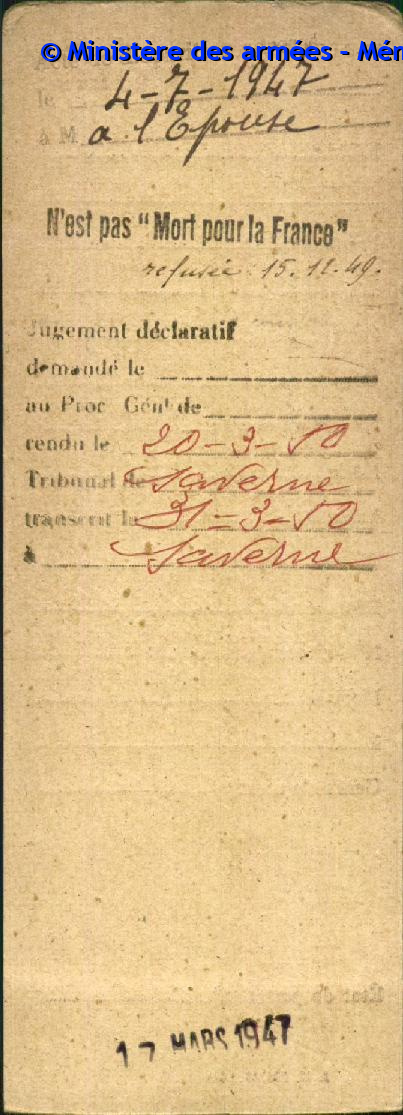 © Ministère des armées - Mém
le
4-7-1947
à M
a l'Epouse
N'est pas "Mort pour la France"
refusée 15.12.49.
Jugement déclaratif
demandé le
au Proc Génl de
rendu le 20-3-50
Tribunal de Saverne
transcrit le 31-3-50
à Saverne
17 MARS 1947